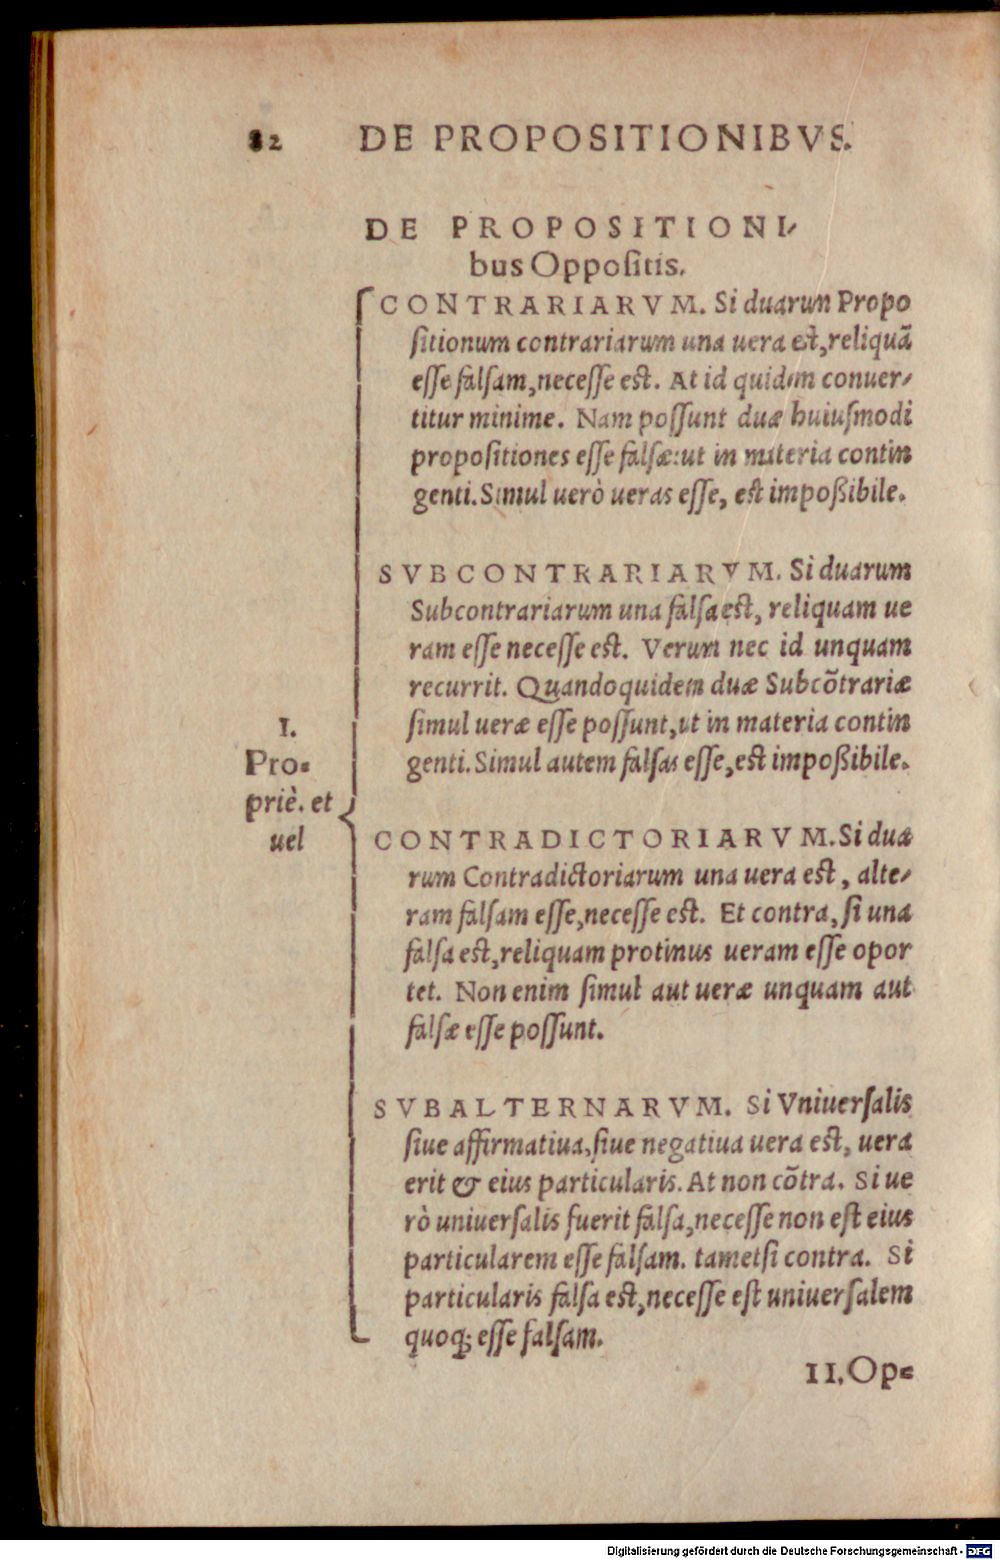 82 DE PROPOSITIONIBVS.
DE PROPOSITIONI-
bus Oppositis.
CONTRARIARVM. Si duarum Propo
sitionum contrariarum una uera est, reliquã
esse falsam, necesse est. At id quidem conuer-
titur minime. Nam possunt duæ huiusmodi
propositiones esse falsæ: ut in materia contin
genti. Simul uerò ueras esse, est impoßibile.
SVBCONTRARIARVM. Si duarum
Subcontrariarum una falsa est, reliquam ue
ram esse necesse est. Verum nec id unquam
recurrit. Quandoquidem duæ Subcõtrariæ
simul ueræ esse possunt, ut in materia contin
genti. Simul autem falsas esse, est impoßibile.
I.
Pro-
priè. et
uel
CONTRADICTORIARVM. Si dua
rum Contradictoriarum una uera est, alte-
ram falsam esse, necesse est. Et contra, si una
falsa est, reliquam protinus ueram esse opor
tet. Non enim simul aut ueræ unquam aut
falsæ esse possunt.
SVBALTERNARVM. Si Vniuersalis
siue affirmatiua, siue negatiua uera est, uera
erit & eius particularis. At non cõtra. Si ue
rò uniuersalis fuerit falsa, necesse non est eius
particularem esse falsam. tametsi contra. Si
particularis falsa est, necesse est uniuersalem
quoq; esse falsam.
II. Op-
Digitalisierung gefördert durch die Deutsche Forschungsgemeinschaft - DFG